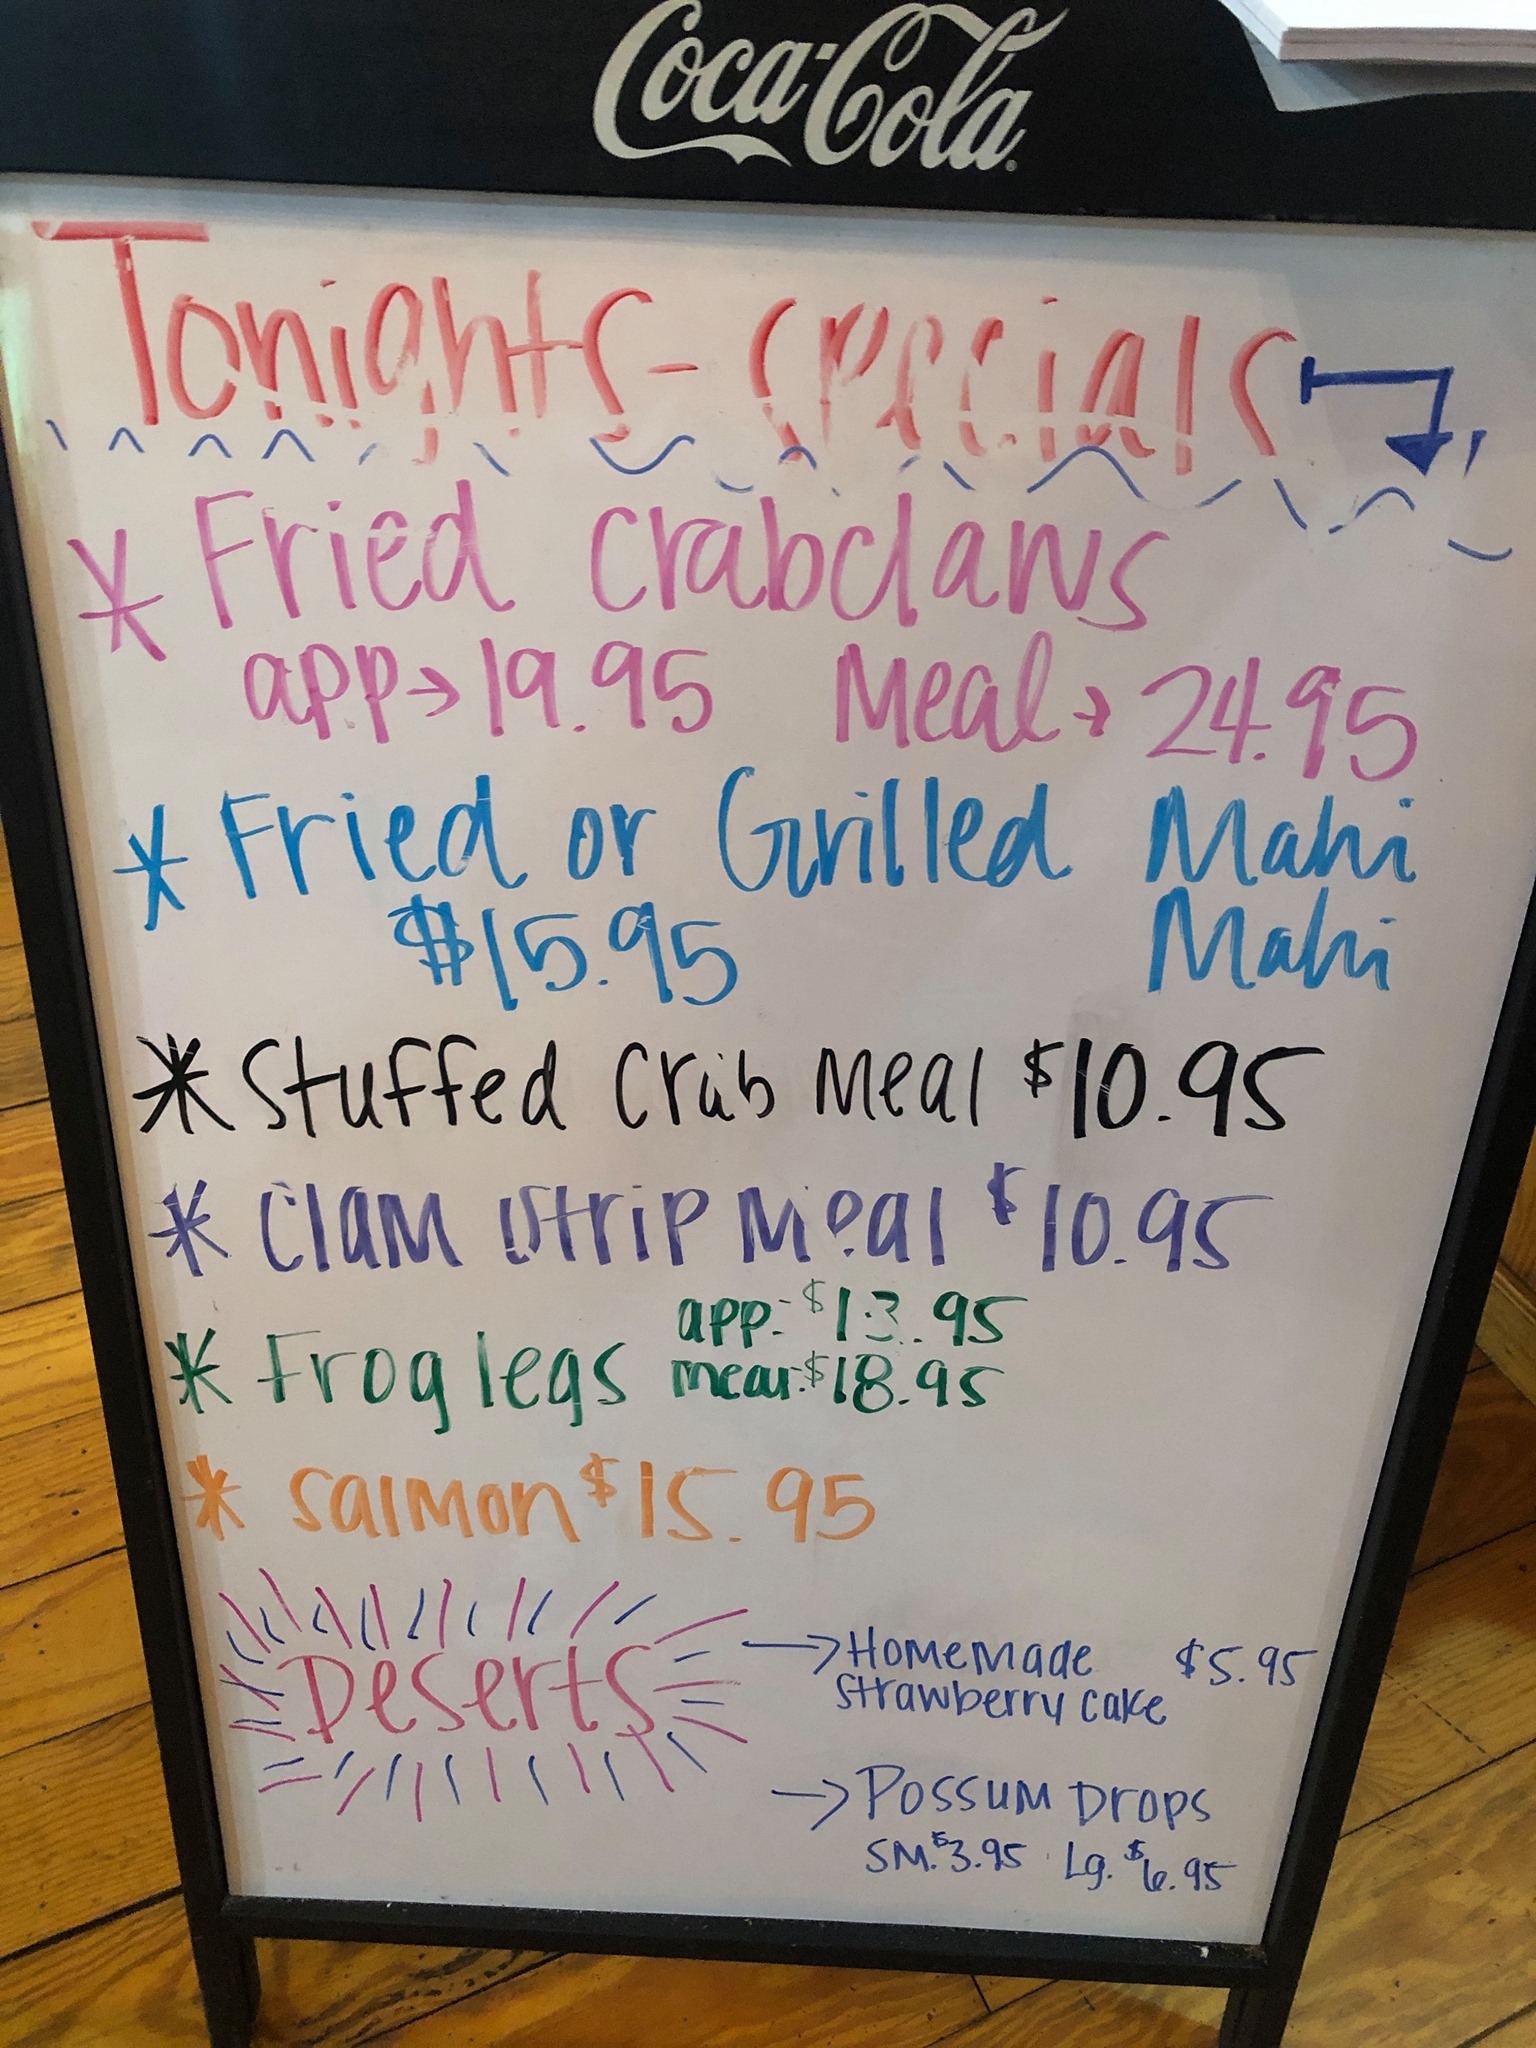 Coca-Cola
Tonights - specials
* Fried crabclaws
app → 19.95 Meal → 24.95
* Fried or Grilled Mahi
$15.95 Mahi
* Stuffed Crab Meal $10.95
* Clam Strip Meal $10.95
app: $13.95
* Frog legs meal: $18.95
* Salmon $15.95
Deserts → Homemade $5.95
Strawberry cake
→ Possum Drops
SM. $3.95 Lg. $6.95